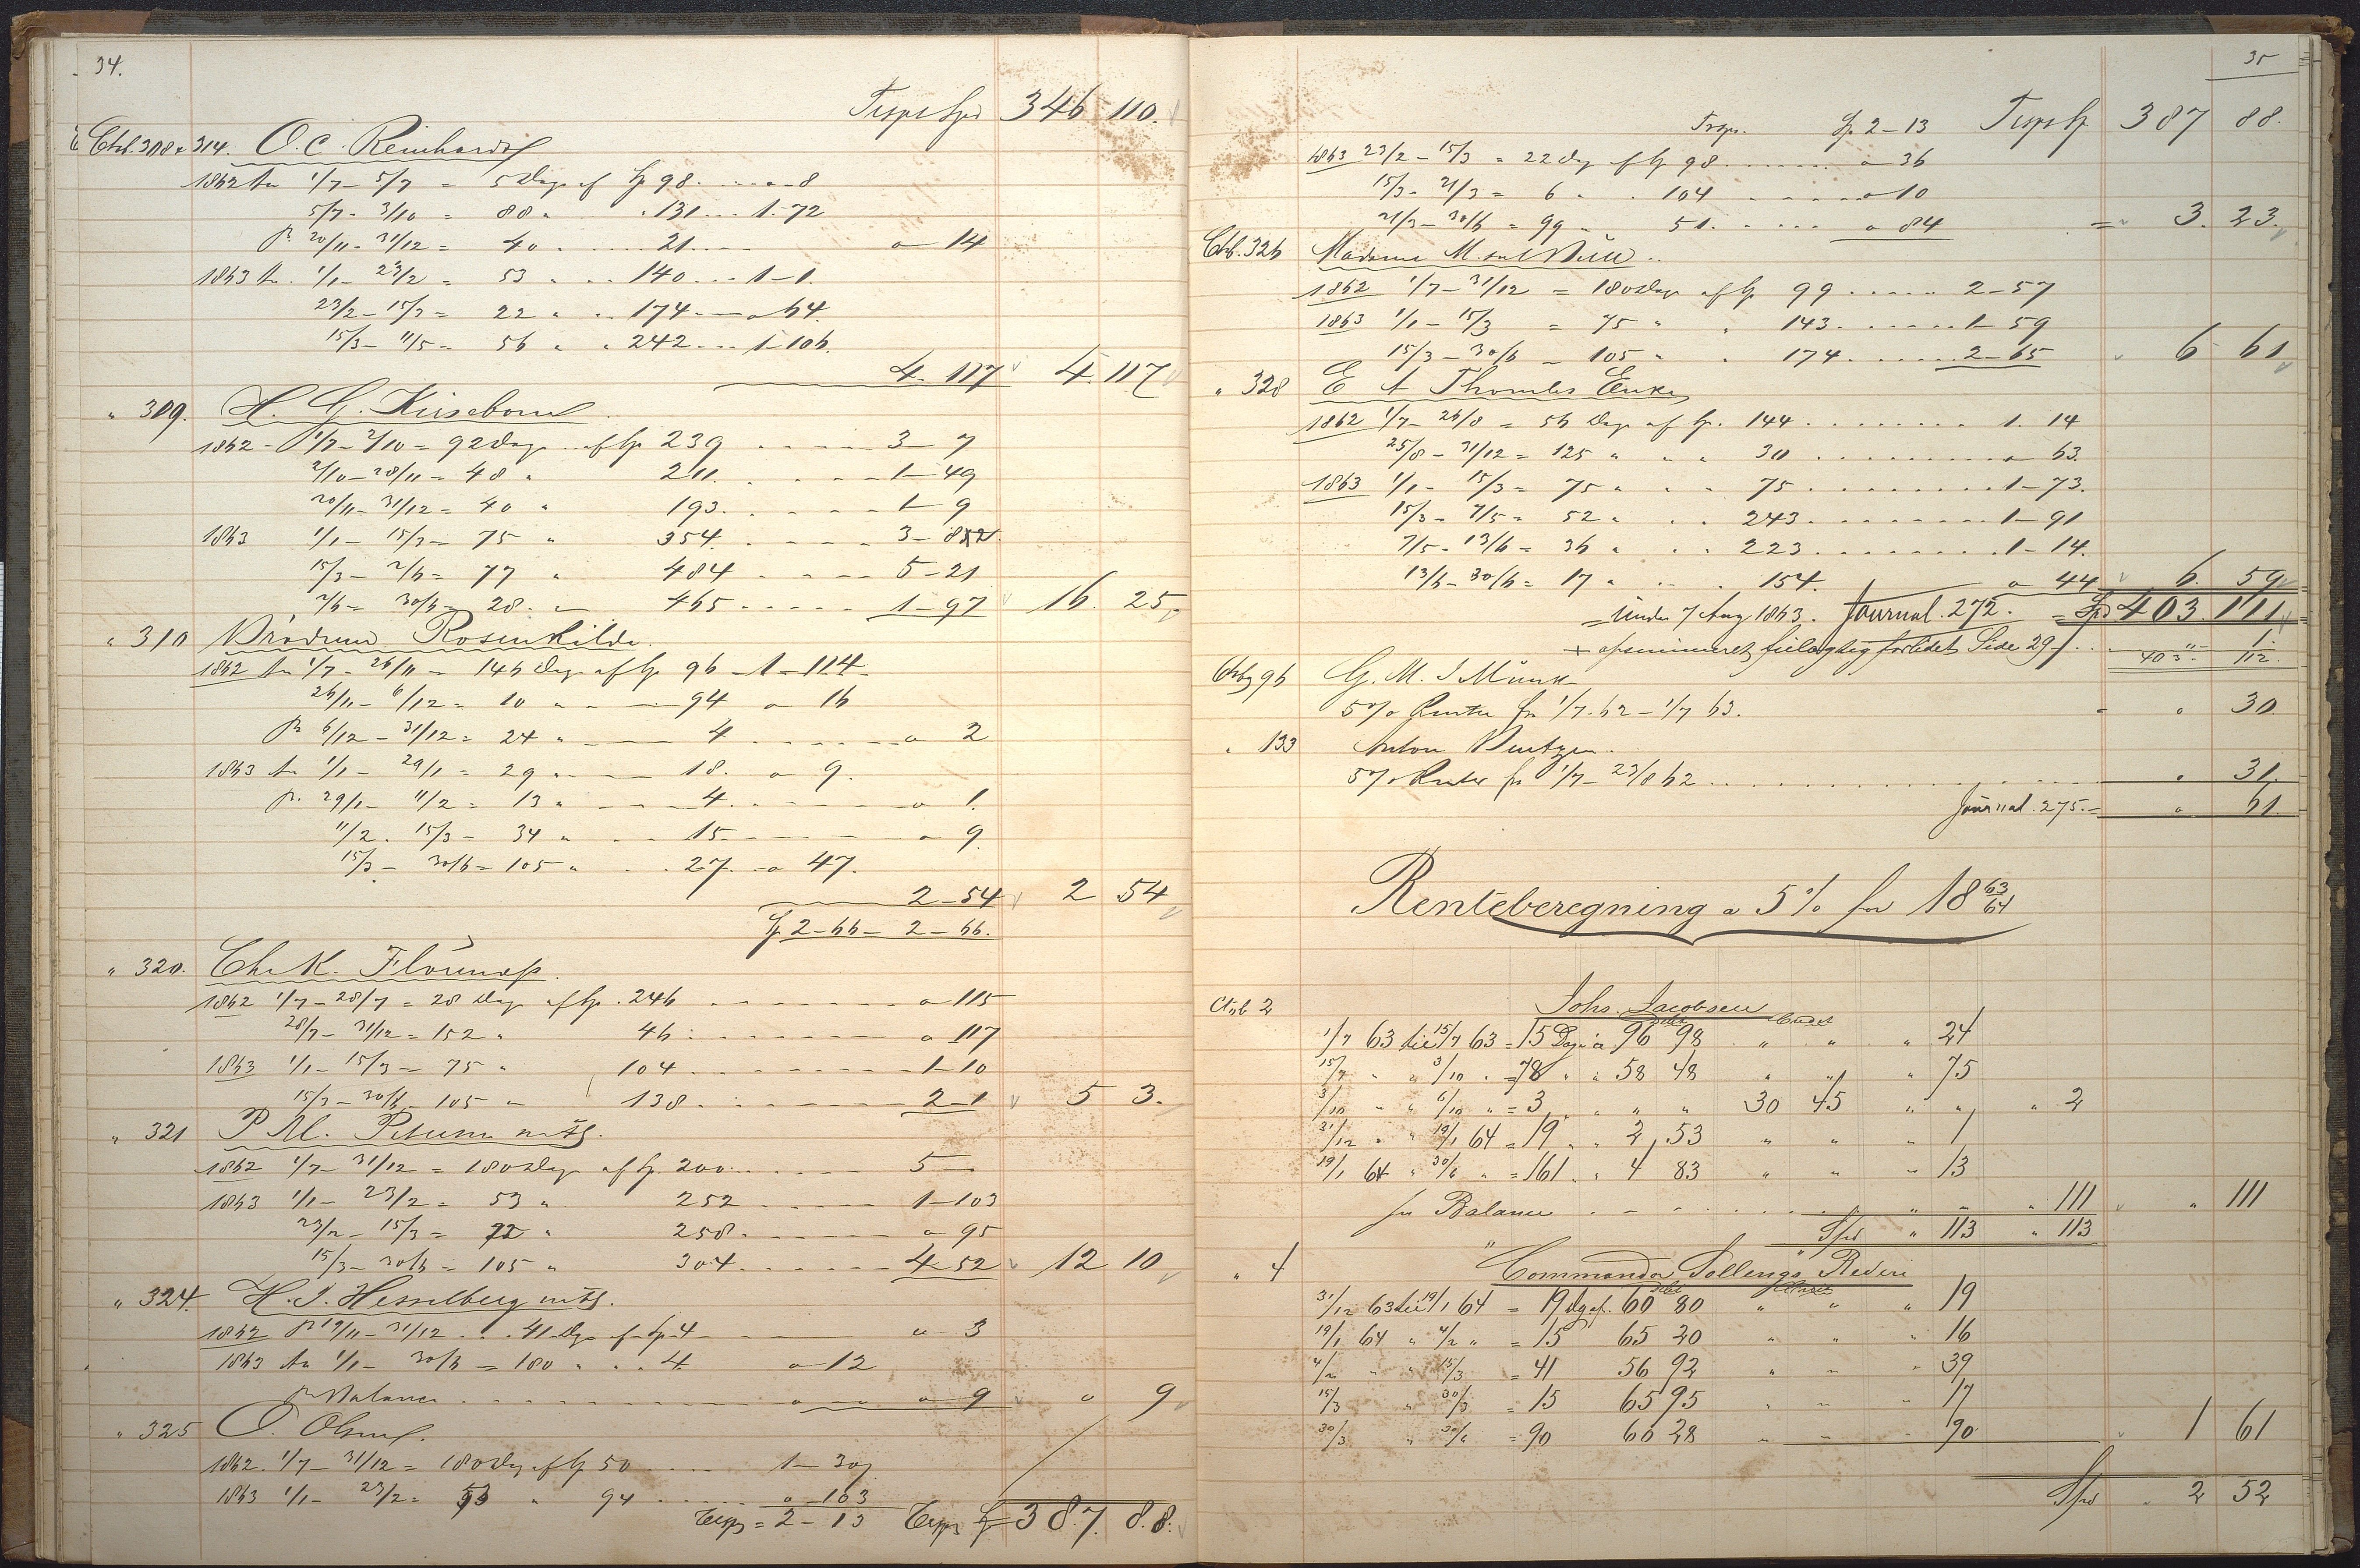 34.
Trsps Spd 346 110.
Ctrb. 308 & 314. O. C. Reinhardt
1862 1/7 - 5/7 = 5 Dage af Sp 98 8
5/7 - 3/10 = 88 " 131 1-72
20/11 - 31/12 = 40 21 14
1863 1/1 - 23/2 = 53 " 140 1-1.
23/2 - 15/3 = 22 " 174 64.
15/3 - 11/5 = 56 " 242 1-106.
4. 117 4. 117
" 309.
1862 - 1/7 - 2/10 = 92 Dage af Sp 239 3-7
2/10 - 20/11 = 48 " 211. 1-49
20/11 - 31/12 = 40 " 193. 1-9
1863 1/1 - 15/3 = 75 " 354.
15/3 - 2/6 = 77 " 484 5-21
2/6 = 30/6 = 28. 465 1-97 16. 25
" 310 Brødrene Rosenkilde
1862 1/7 - 26/11 = 146 Dage af Sp 96 1-114.
26/11 - 6/12 = 10 94 16
6/12 - 31/12 = 24 " 4 2
1863 1/1 - 29/1 = 29 18. 9.
29/1 - 11/2 = 13 " 4. 1.
11/2. 15/3 - 34 " 15 9.
15/3 - 30/6 = 105 " 27. 47.
2-54 2 54
Sp 2-66 - 2-66.
" 320. Chr. K.
1862 1/7 - 28/7 = 28 Dage af Sp. 246 115
28/7 - 31/12 = 152 " 46 117
1863 1/1 - 15/3 = 75 " 104 1-10
15/3 - 30/6 105 " 138 2-1 5 3.
" 321 P. M.
1862 1/7 - 31/12 = 180 Dage af Sp. 200 5
1863 1/1 - 23/2 = 53 " 252 1-103
23/2 - 15/3 = 22 " 258 95
15/3 - 30/6 = 105 " 304 4-52 12 10
" 324. H. J. Hesselberg
1862 19/11 - 31/12 41 Dage af Sp 4 " 3
1863 1/1 - 30/6 = 180 " 4 12
pr Balance 9 9
" 325 O. Olsen
1862. 1/7 - 31/12 = 180 Dage af Sp 50 1-30
1863 1/1 - 23/2 = 53 " 94 103
Trsps = 2-13 Trsps Sp 387. 88.
35
Trsps. Sp 2-13 Trsps Sp 387 88.
1863 23/2 - 15/3 = 22 Dag af Sp 98 36
15/3 - 21/3 = 6 " 104 10
21/3 - 30/6 = 99 " 51. 84 = 3. 23.
Ctrb. 326 Madame M.
1862 1/7 - 31/12 = 180 Dage af Sp 99 2-57
1863 1/1 - 15/3 = 75 " 143 1-59
15/3 - 30/6 105 " 174 2-65 6 61
" 328 E A Thomles Enke
1862 1/7 - 26/8 = 56 Dage af Sp. 144 1. 14
25/8 - 31/12 = 125 " 30 63.
1863 1/1 - 15/3 = 75 " 75 1-73.
15/3 - 7/5 = 52 " 243 1-91
7/5 - 13/6 = 36 " 223 1-14.
13/6 - 30/6 = 17 " 154. 44 6. 59
= under 7 Aug 1863. Journal. 272. = Spd 403. 111
+ opsummeret feilagtig Side 29 1
403 112.
96 G. M. J Munk
5% Renter fra 1/7. 62 - 1/7 63. 30
" 133 Anton
5% Renter fra 1/7 - 23/8 62 31.
Journal. 275. = 61
Renteberegning a 5% for 18 63/64
Ctrb 2 Johs. Jacobsen
Debet Credit
1/7 63 til 15/7 63 = 15 Dage a 96 98 " " " 24
15/7 " " 3/10 " = 78 " " 58 48 " " " 75
3/10 " " 6/10 " = 3 " " " " 30 45 " " " 2
31/12 " " 19/1 64 = 19 " " 2 53 " " " 1
19/1 64 " 30/6 " = 161 " " 4 83 " " " 13
for Balance " 111 " 111
Spd " 113 " 113
" 4 Commandør Sellengs Rederi
Debet Credit
31/12 63 til 19/1 64 = 19 Dg af. 60 80 " " " 19
19/1 64 " 4/2 " = 15 65 20 " " " 16
4/2 " " 15/3 = 41 56 92 " " " 39
15/3 " 30/3 = 15 65 95 " " " 17
30/3 " 30/6 = 90 66 28 " " 90 1 61
Spd 2 52